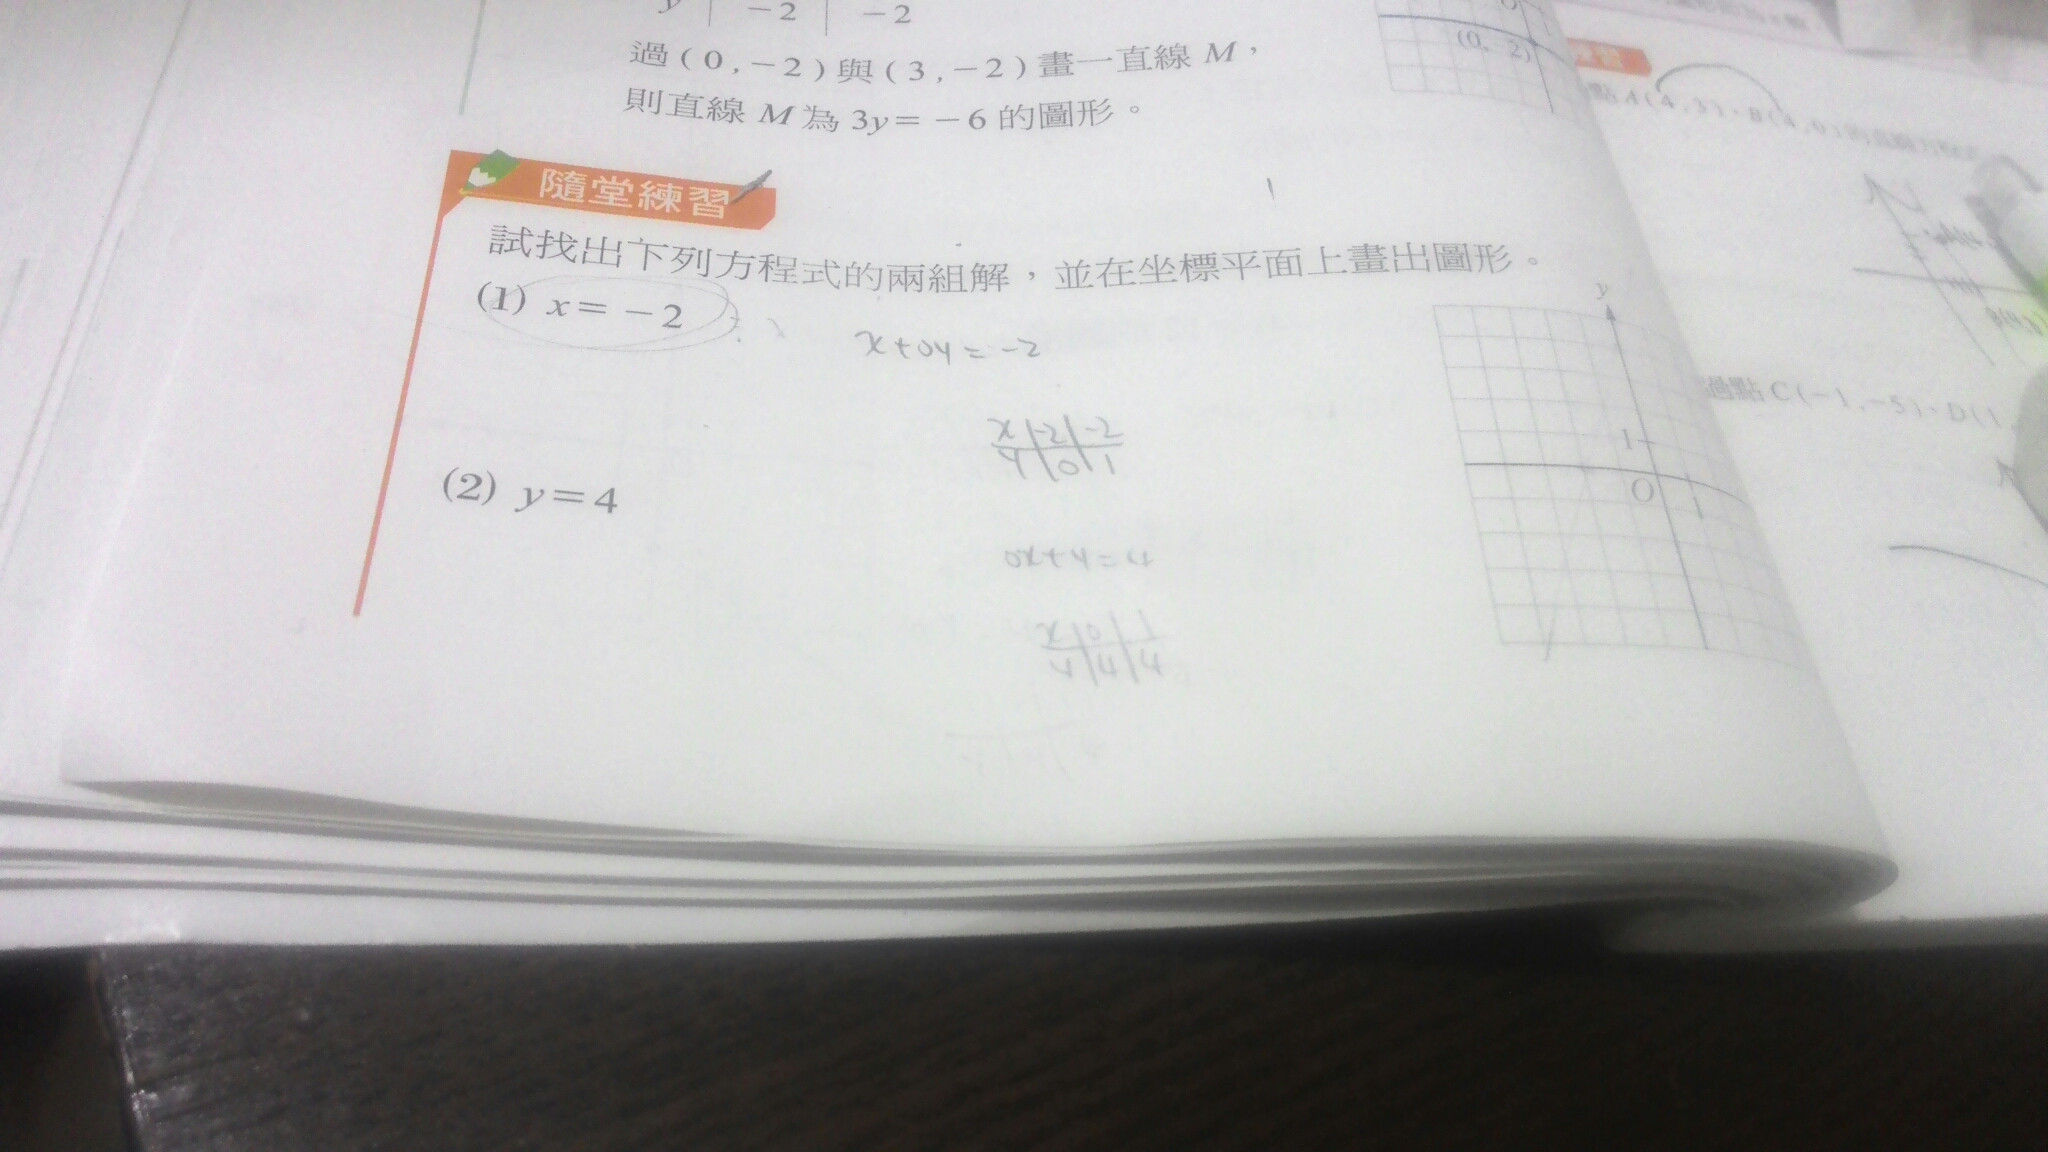 y -2 -2
過(0,-2)與(3,-2)畫一直線 M，
則直線 M 為 3y=-6 的圖形。
(0,-2)
隨堂練習
試找出下列方程式的兩組解，並在坐標平面上畫出圖形。
(1) x=-2
x+0y=-2
x -2 -2
y 0 1
(2) y=4
0x+y=4
x 0 1
y 4 4
y
1
O
1
點A(4,3)、B(4,0)的直線方程式
過點C(-1,-5)、D(1,